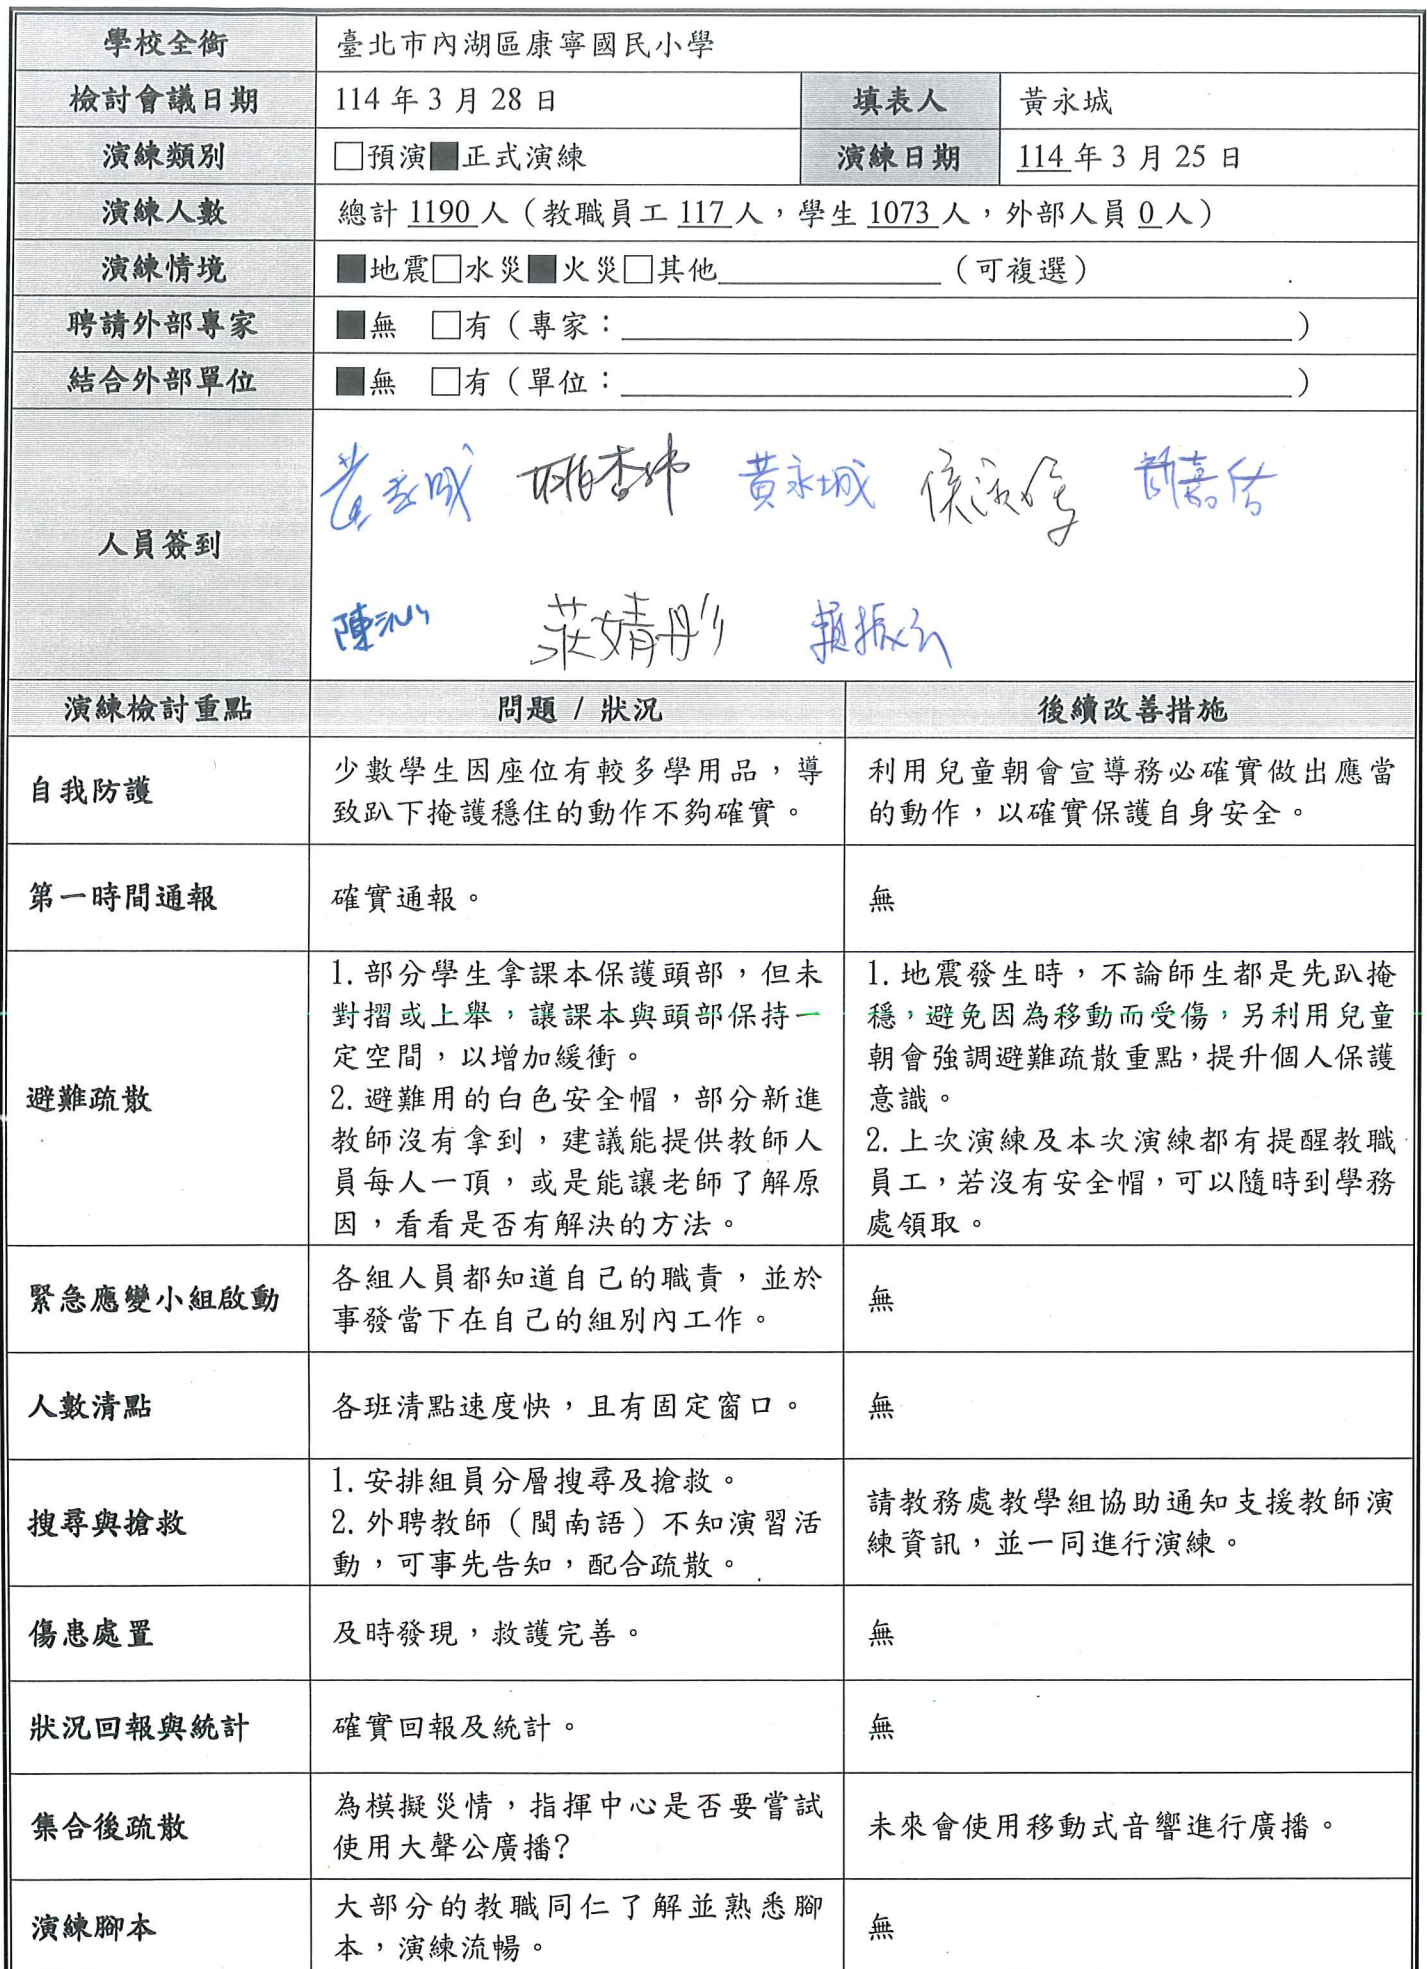 學校全銜 臺北市內湖區康寧國民小學
檢討會議日期 114 年 3 月 28 日 填表人 黃永城
演練類別 □預演■正式演練 演練日期 114 年 3 月 25 日
演練人數 總計 1190 人（教職員工 117 人，學生 1073 人，外部人員 0 人）
演練情境 ■地震□水災■火災□其他______________（可複選）
聘請外部專家 ■無 □有（專家：______________）
結合外部單位 ■無 □有（單位：______________）
黃永城
人員簽到
莊婧彤
演練檢討重點 問題 / 狀況 後續改善措施
自我防護
少數學生因座位有較多學用品，導
致趴下掩護穩住的動作不夠確實。
利用兒童朝會宣導務必確實做出應當
的動作，以確實保護自身安全。
第一時間通報 確實通報。 無
避難疏散
1. 部分學生拿課本保護頭部，但未
對摺或上舉，讓課本與頭部保持一
定空間，以增加緩衝。
2. 避難用的白色安全帽，部分新進
教師沒有拿到，建議能提供教師人
員每人一頂，或是能讓老師了解原
因，看看是否有解決的方法。
1. 地震發生時，不論師生都是先趴掩
穩，避免因為移動而受傷，另利用兒童
朝會強調避難疏散重點，提升個人保護
意識。
2. 上次演練及本次演練都有提醒教職
員工，若沒有安全帽，可以隨時到學務
處領取。
緊急應變小組啟動
各組人員都知道自己的職責，並於
事發當下在自己的組別內工作。
無
人數清點 各班清點速度快，且有固定窗口。 無
搜尋與搶救
1. 安排組員分層搜尋及搶救。
2. 外聘教師（閩南語）不知演習活
動，可事先告知，配合疏散。
請教務處教學組協助通知支援教師演
練資訊，並一同進行演練。
傷患處置 及時發現，救護完善。 無
狀況回報與統計 確實回報及統計。 無
集合後疏散
為模擬災情，指揮中心是否要嘗試
使用大聲公廣播?
未來會使用移動式音響進行廣播。
演練腳本
大部分的教職同仁了解並熟悉腳
本，演練流暢。
無